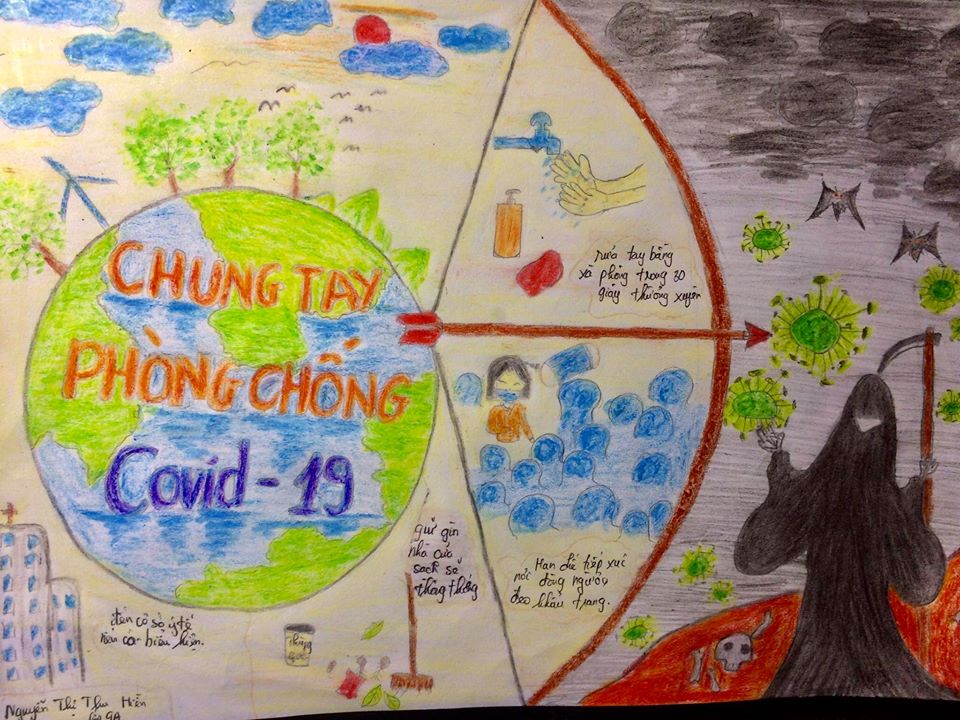 CHUNG TAY
PHÒNG CHỐNG
Covid - 19
rửa tay bằng
xà phòng trong 20
giây thường xuyên
Hạn chế tiếp xúc
nơi đông người
đeo khẩu trang.
giữ gìn
nhà cửa
sạch sẽ
thông thoáng
đến cơ sở y tế
nếu có biểu hiện.
thùng
Nguyễn Thị Thu Hiền
9A